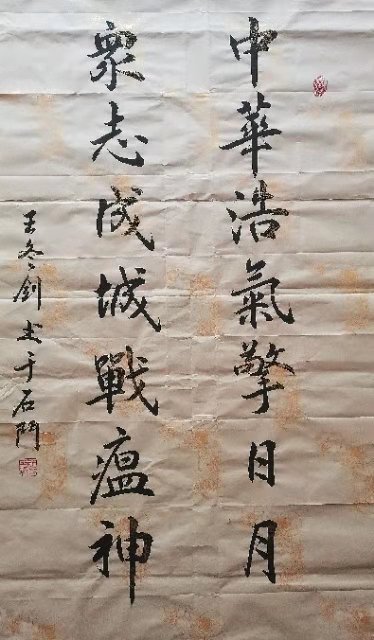 中華浩氣擎日月
眾志成城戰瘟神
王冬劍书于石門